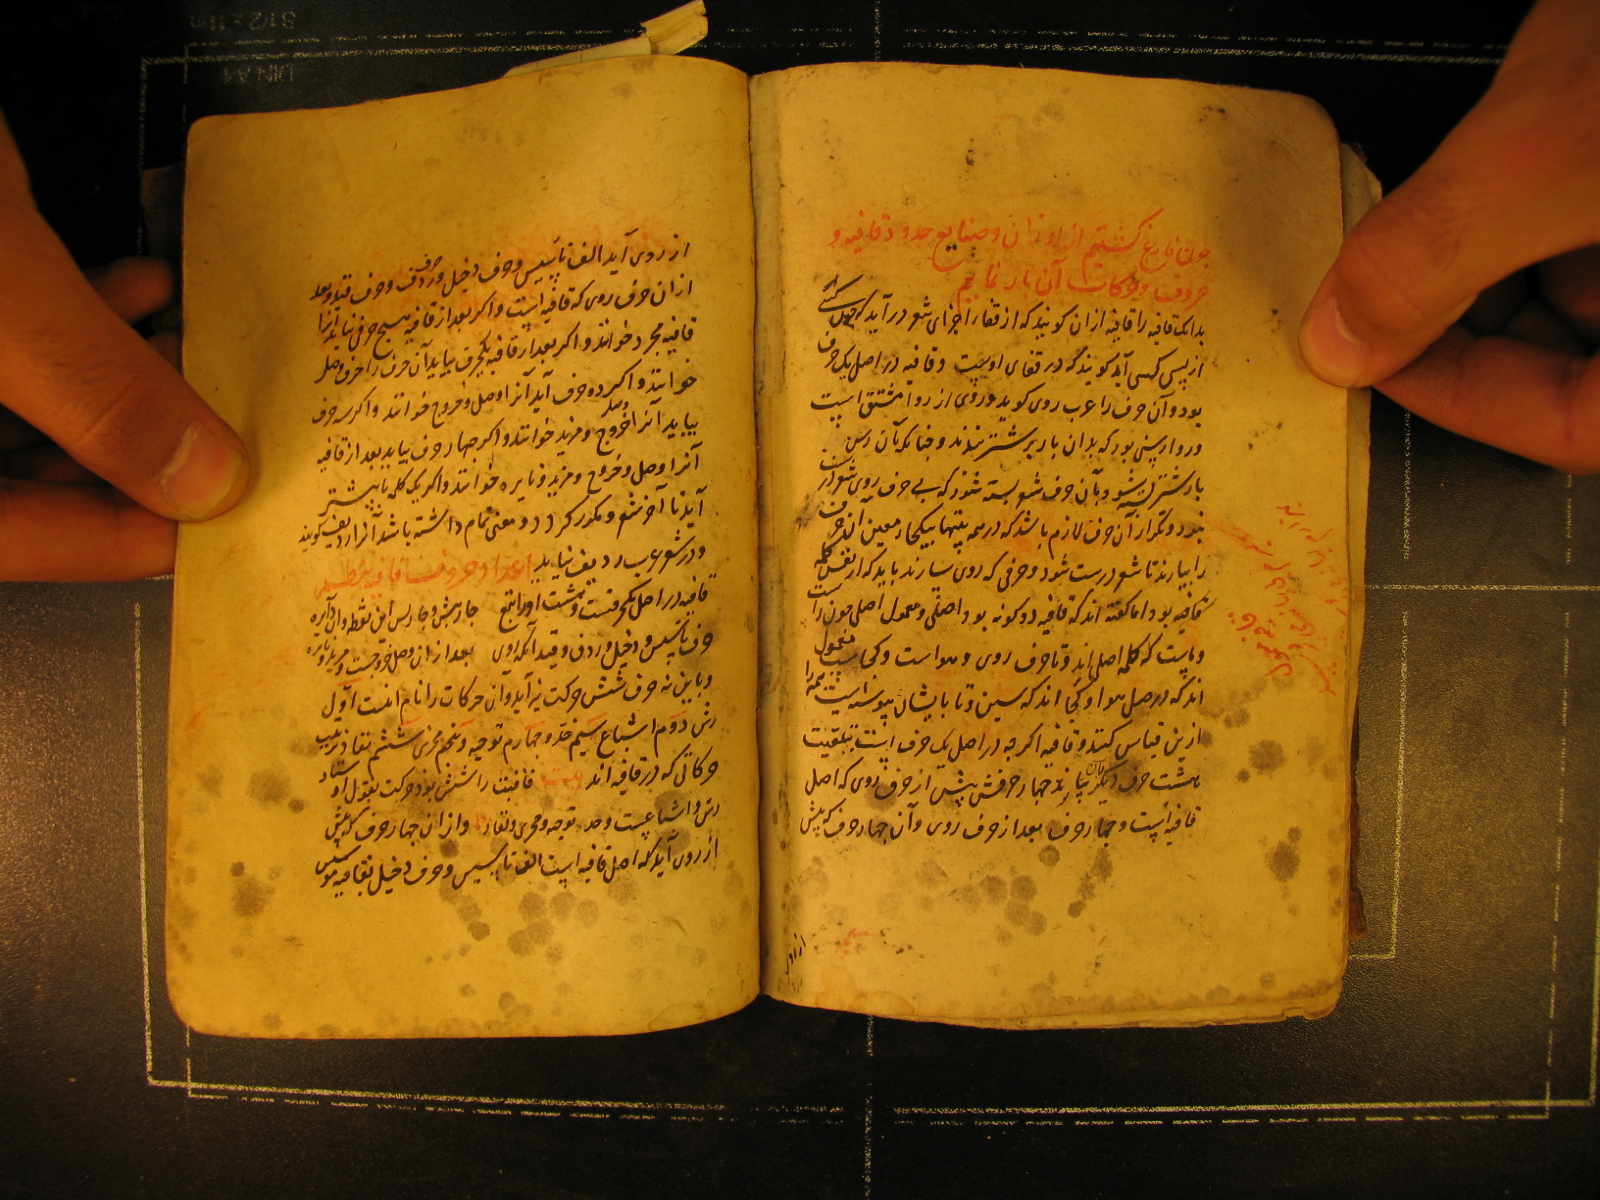 چون فارغ گشتیم از اوزان و صنایع حدود قافیه و
حروف و حرکات آن باز نماییم
بدانک قافیه را قافیه از ان کویند که از قفاء اجزای شعر در آید که چون کسی
از پس کسی آید کویند که در قفای اوست و قافیه در اصل یک حرف
بود و آن حرف را عرب روی کوید و روی از روا مشتق است
و روا رسنی بود که بدان بار بر شتر بندند و چنانکه بآن رسن
بار شتر بسته شود و بآن حرف شعر بسته شود که بی حرف روی شعر درست
نبود و تکرار آن حرف لازم باشد که در همه بیتها بیکجاء معین آن حرف
را بیارند تا شعر درست شود و حرفی که روی سازند باید که از نفس کلمه
قافیه بود اما کفته اند که قافیه دو کونه بود اصلی و معمول اصلی چون را
که کلمه اصلی اند و تا حرف روی و هواست و کجاست معمول
اند که در اصل هوا و کجا اند که سین و تا بایشان پیوسته است همه را
ازین قیاس کنند و قافیه اکرچه در اصل یک حرف است بتبعیت
هشت حرف دیکر بیاید چهار حرفش پیش از حرف روی که اصل
قافیه است و چهار حرف بعد از حرف روی و آن چهار حرف که پیش
از روی آید الف تاسیس و حرف دخیل و حرف ردف و حرف قید و بعد
از ان حرف روی که قافیه است و اکر بعد از قافیه هیچ حرفی نیاید آنرا
قافیه مجرد خوانند و اکر بعد از قافیه یکحرف بیاید آن حرف را حرف وصل
خوانند و اکر دو حرف آید آنرا وصل و خروج خوانند و اکر سه حرف
بیاید آنرا وصل و خروج و مزید خوانند و اکر چهار حرف بیاید بعد از قافیه
آنرا وصل و خروج و مزید و نایره خوانند و اکر یک کلمه یا بیشتر
آید تا آخر شعر و مکرر کردد و معنی تمام داشته باشد آنرا ردیف کویند
و در شعر عرب ردیف نیاید اعداد حروف قافیه نظم
قافیه در اصل یکحرفست و هشت اورا تبع چار پیش و چار پس این نقطه و ان دایره
حرف تاسیس و دخیل و ردف و قید آنکه روی بعد از ان وصل و خروجست و مزید و نایره
و باین نه حرف شش حرکت نیز آید و آن حرکات را نام اینست اول
رس دوم اشباع سیم حذو چهارم توجیه و پنجم مجری ششم نفاذ
حرکاتی که در قافیه اند بیت قافیت را شش بود حرکت بقول اوستاد
رس و اشباعست و حذو توجیه و مجری و نفاذ و از ان چهار حرف که پیش
از روی آید که اصل قافیه است الف تاسیس و حرف دخیل بقافیه موسس